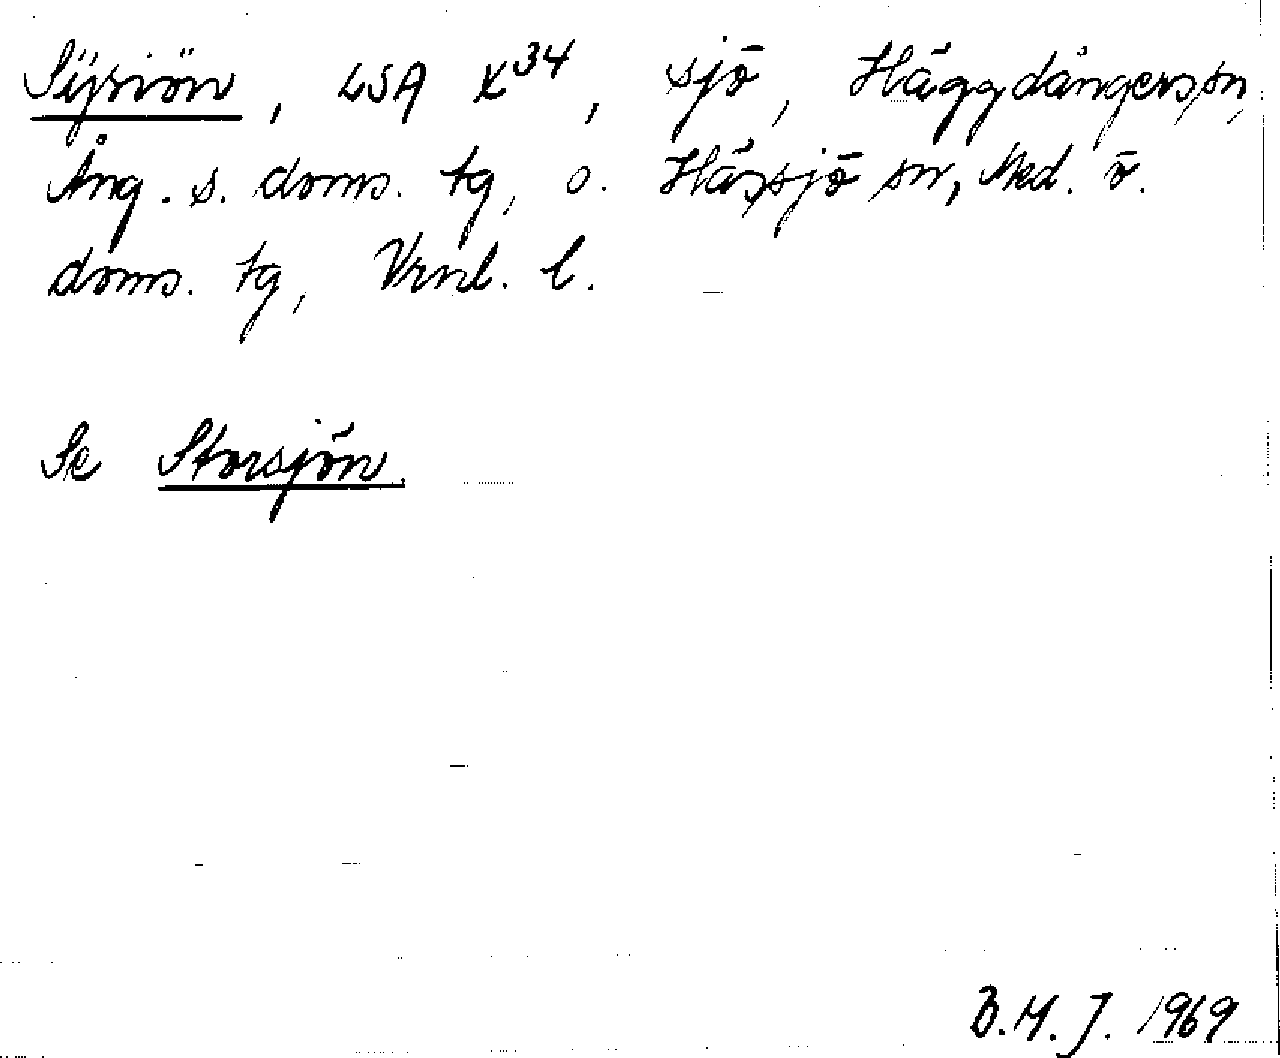 Sÿsiön, LSA X34, sjö, Häggdångers sn,
Ång. s. doms. tg, o. Hässjö sn, Med. ö.
doms. tg, Vrnl. l.
Se Storsjön.
B.M.J. 1969